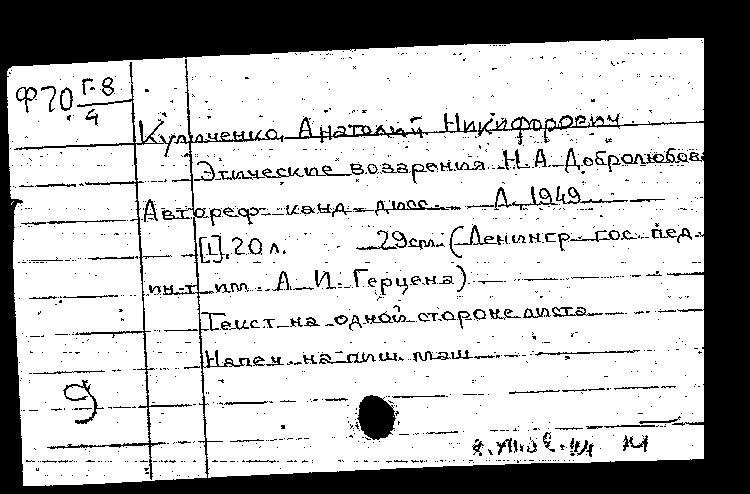 Ф70 Г-8
4
Куличенко, Анатолий Никифорович.
Этические воззрения Н.А. Добролюбова
Автореф. канд. дисс. Л., 1949.
[1], 20 л. 29 см. (Ленингр. гос. пед.
ин-т им. А. И. Герцена)
Текст на одной стороне листа
Напеч. на пиш. маш.
9